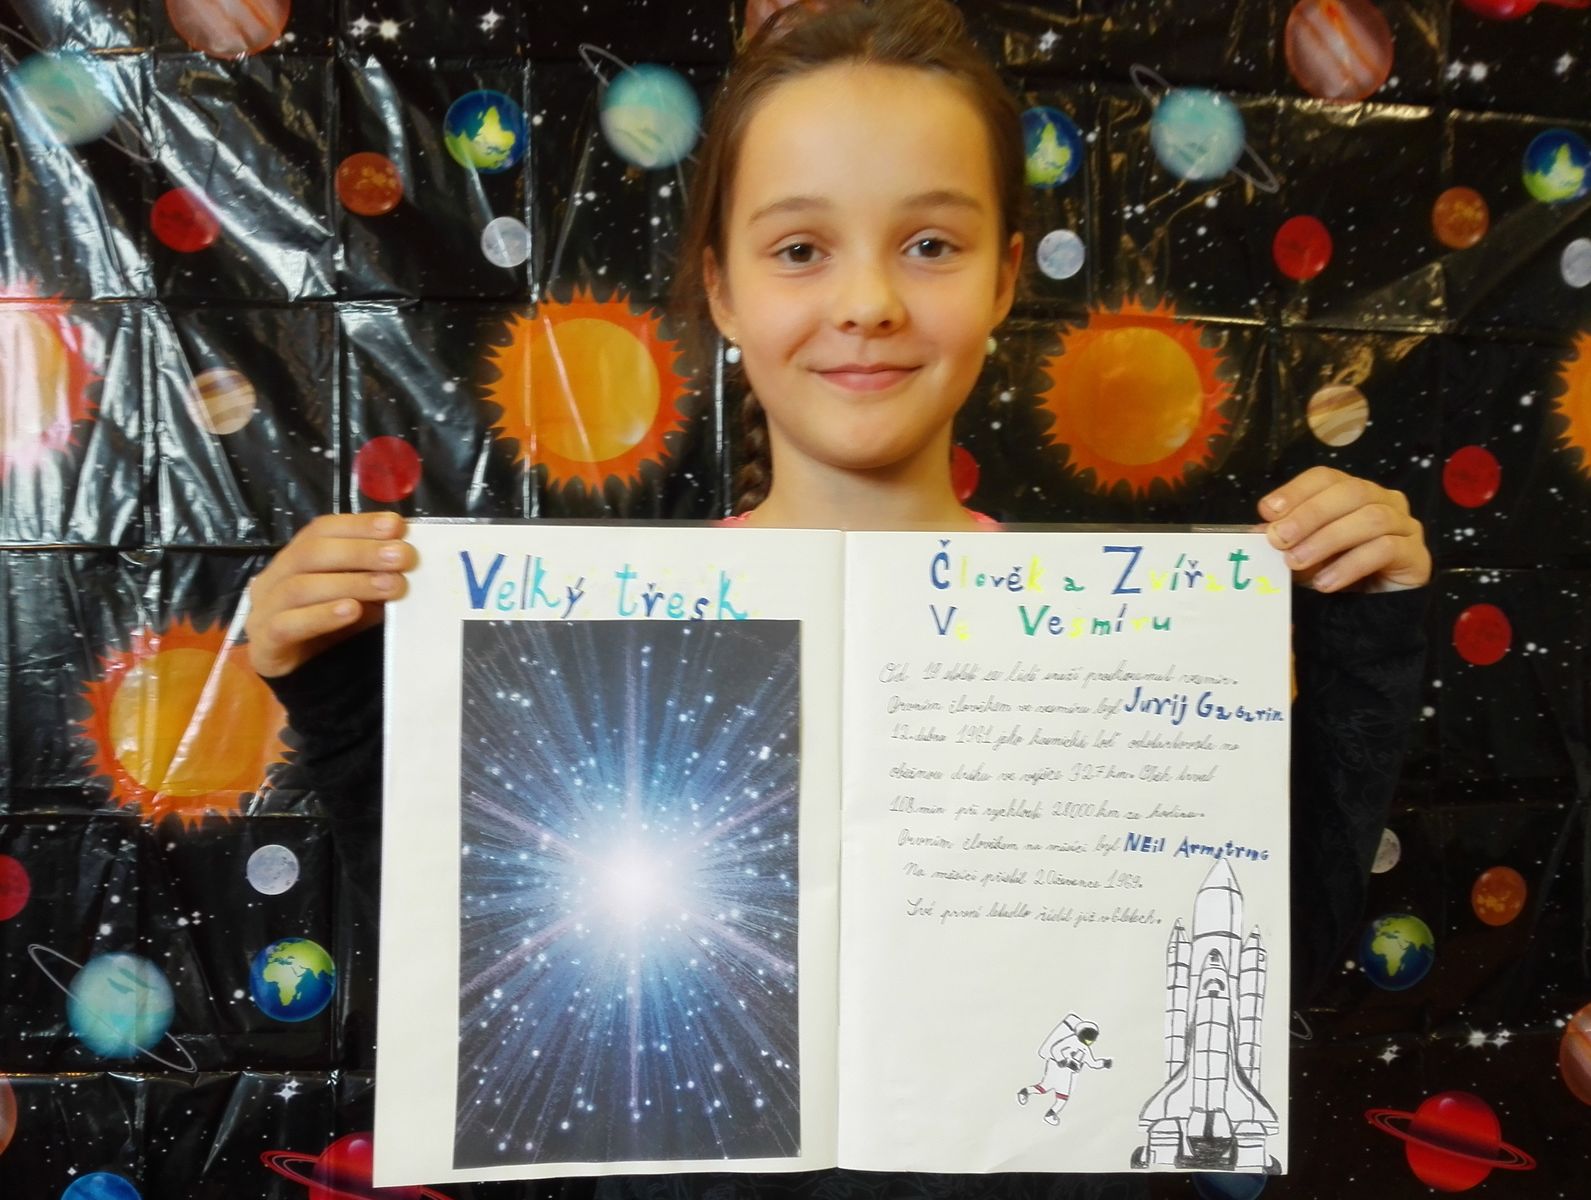 Velký třesk
Člověk a Zvířata
Ve Vesmíru
Od 19 století se lidé snaží prozkoumat vesmír.
Prvním člověkem ve vesmíru byl Jurij Gagarin
12. dubna 1961 jeho kosmická loď odstartovala na
oběžnou dráhu ve výšce 327 km. Oběh trval
108 min při rychlosti 28000 km za hodinu.
Prvním člověkem na měsíci byl NEil Armstrong
Na měsíci přistál 20 července 1969.
Své první letadlo řídil již v 6 letech.